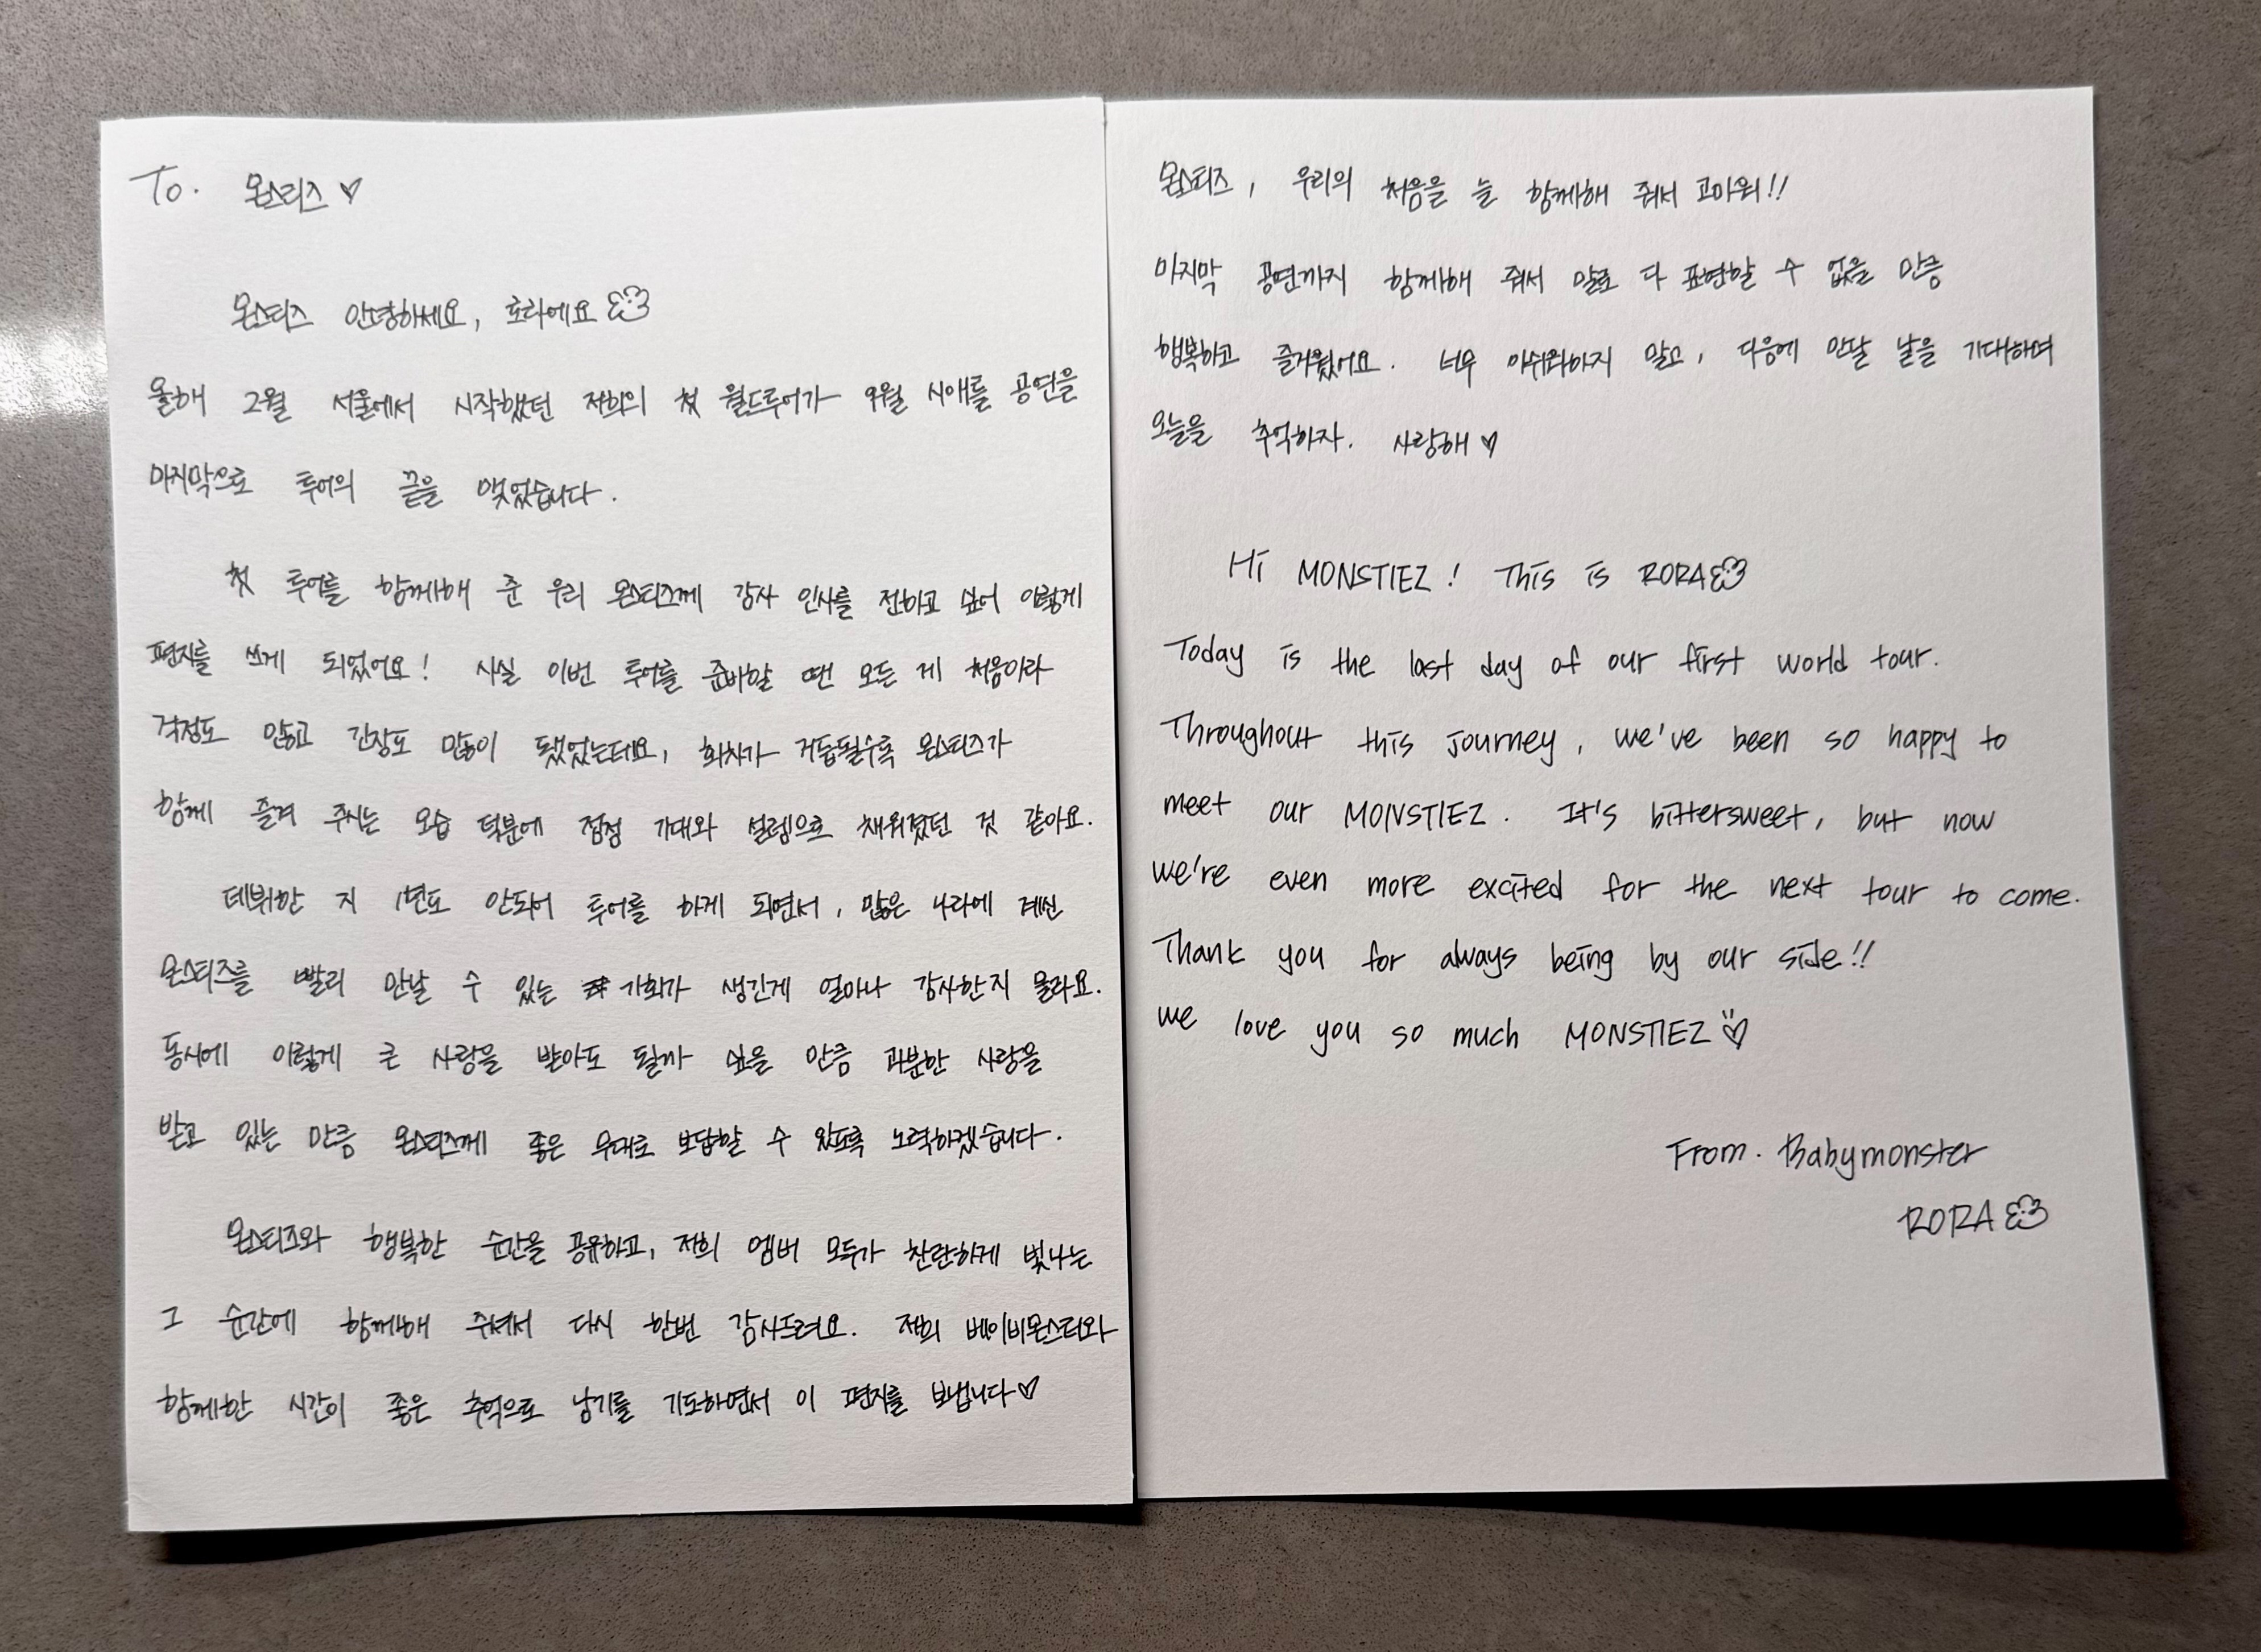 To. 몬스티즈 ♡
몬스티즈 안녕하세요, 로라에요
올해 2월 서울에서 시작했던 저희의 첫 월드투어가 9월 시애틀 공연을
마지막으로 투어의 끝을 맺었습니다.
첫 투어를 함께해 준 우리 몬스티즈께 감사 인사를 전하고 싶어 이렇게
편지를 쓰게 되었어요! 사실 이번 투어를 준비할 땐 모든 게 처음이라
걱정도 많고 긴장도 많이 됐었는데요, 회차가 거듭될수록 몬스티즈가
함께 즐겨 주시는 모습 덕분에 점점 기대와 설렘으로 채워졌던 것 같아요.
데뷔한 지 1년도 안되어 투어를 하게 되면서, 많은 나라에 계신
몬스티즈를 빨리 만날 수 있는 기회가 생긴게 얼마나 감사한지 몰라요.
동시에 이렇게 큰 사랑을 받아도 될까 싶을 만큼 과분한 사랑을
받고 있는 만큼 몬스티즈께 좋은 무대로 보답할 수 있도록 노력하겠습니다.
몬스티즈와 행복한 순간을 공유하고, 저희 멤버 모두가 찬란하게 빛나는
그 순간에 함께해 주셔서 다시 한번 감사드려요. 저희 베이비몬스터와
함께한 시간이 좋은 추억으로 남기를 기도하면서 이 편지를 보냅니다♡
몬스티즈, 우리의 처음을 늘 함께해 줘서 고마워!!
마지막 공연까지 함께해 줘서 말로 다 표현할 수 없을 만큼
행복하고 즐거웠어요. 너무 아쉬워하지 말고, 다음에 만날 날을 기대하며
오늘을 추억하자. 사랑해♡
Hi MONSTIEZ! This is RORA
Today is the last day of our first world tour.
Throughout this journey, we've been so happy to
meet our MONSTIEZ. It's bittersweet, but now
we're even more excited for the next tour to come.
Thank you for always being by our side!!
we love you so much MONSTIEZ♡
From. Babymonster
RORA